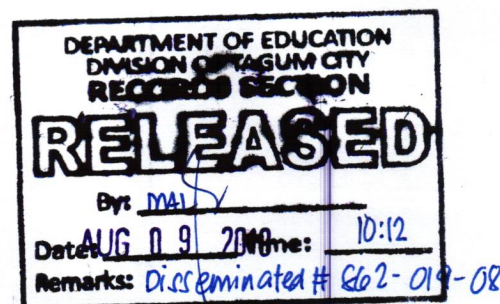 DEPARTMENT OF EDUCATION
DIVISION OF TAGUM CITY
RECORDS SECTION
RELEASED
By: MAI
Date: AUG 09 Time: 10:12
Remarks: Disseminated #